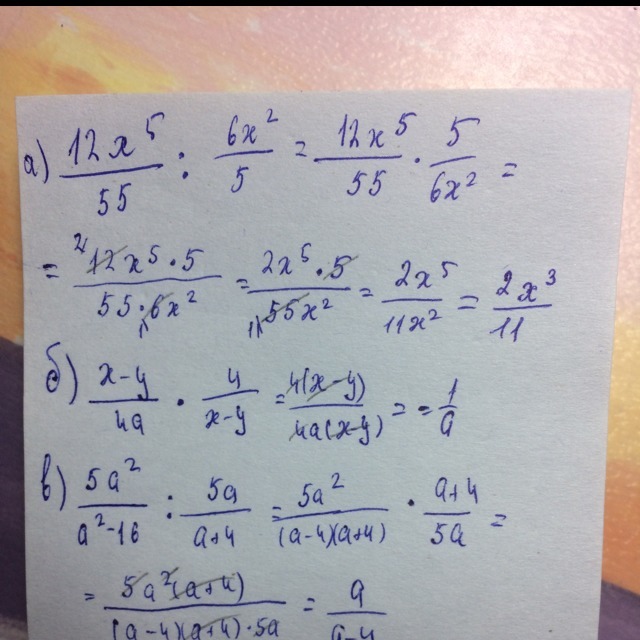 а) 12x⁵/55 : 6x²/5 = 12x⁵/55 · 5/6x² =
= ²12x⁵·5/55·6x²₁ = 2x⁵·5/₁₁55x² = 2x⁵/11x² = 2x³/11
б) x-y/4a · 4/x-y = 4(x-y)/4a(x-y) = = 1/a
в) 5a²/a²-16 : 5a/a+4 = 5a²/(a-4)(a+4) · a+4/5a =
= 5a²(a+4)/(a-4)(a+4)·5a = a/a-4